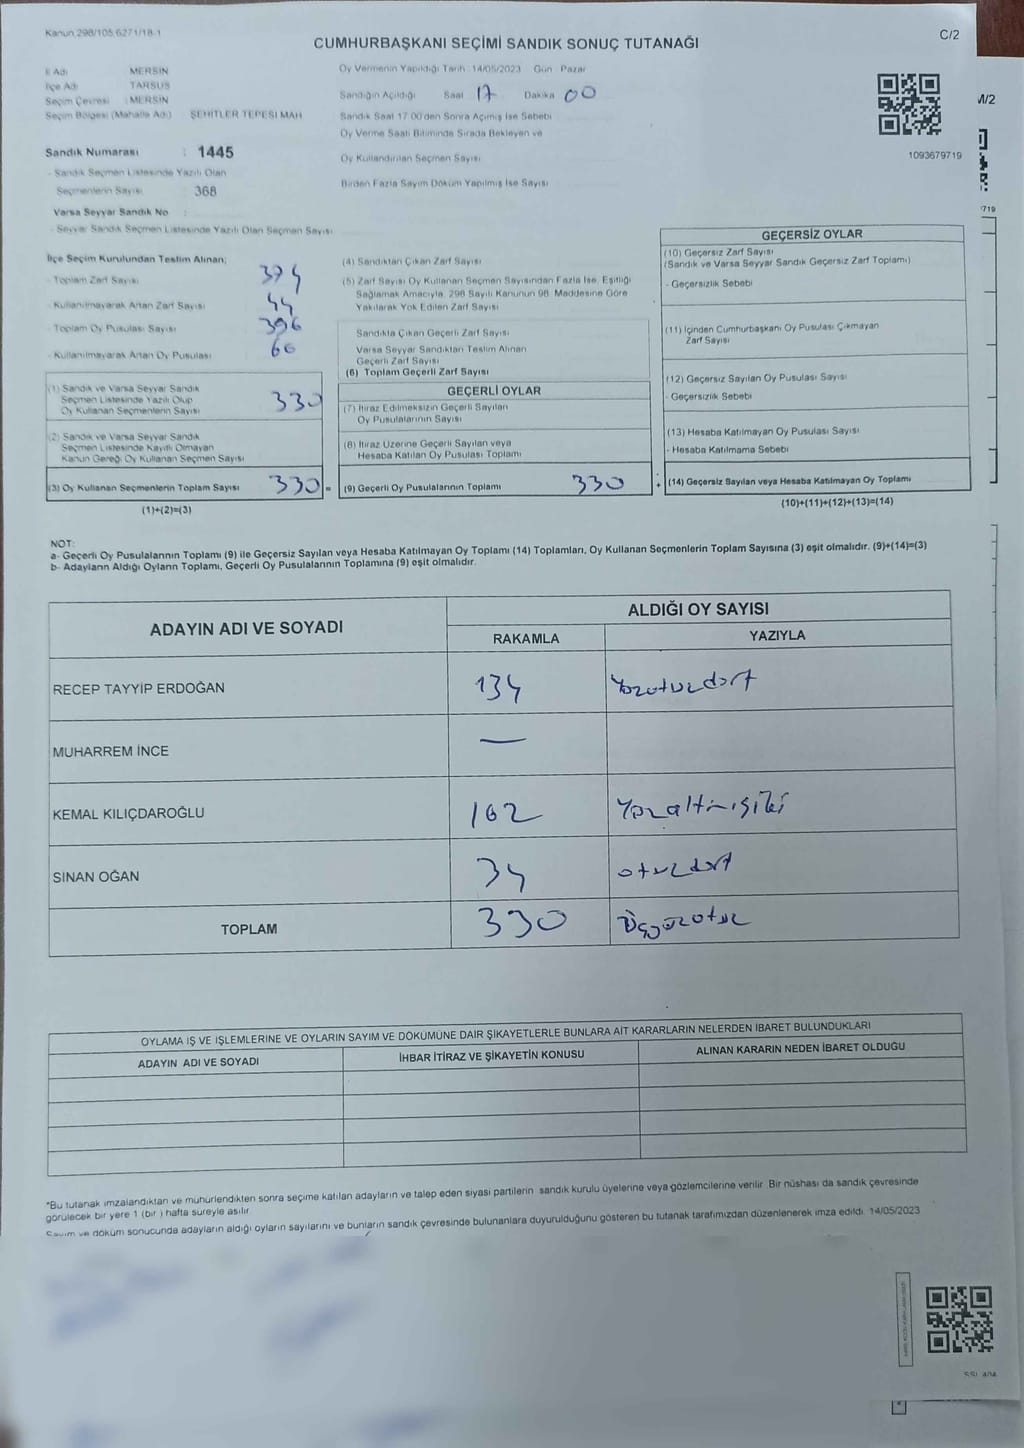 Kanun 298/105,6271/18-1
C/2
CUMHURBAŞKANI SEÇİMİ SANDIK SONUÇ TUTANAĞI
İl Adı : MERSİN
İlçe Adı : TARSUS
Seçim Çevresi : MERSİN
Seçim Bölgesi (Mahalle Adı) : ŞEHİTLER TEPESİ MAH
Sandık Numarası : 1445
- Sandık Seçmen Listesinde Yazılı Olan
Seçmenlerin Sayısı : 368
Varsa Seyyar Sandık No :
- Seyyar Sandık Seçmen Listesinde Yazılı Olan Seçmen Sayısı
Oy Vermenin Yapıldığı Tarih : 14/05/2023 Gün : Pazar
Sandığın Açıldığı Saat 17 Dakika 00
Sandık Saat 17.00'den Sonra Açılmış İse Sebebi
Oy Verme Saati Bitiminde Sırada Bekleyen ve
Oy Kullandırılan Seçmen Sayısı
Birden Fazla Sayım Döküm Yapılmış İse Sayısı
1093679719
M/2
719
İlçe Seçim Kurulundan Teslim Alınan;
- Toplam Zarf Sayısı 374
- Kullanılmayarak Artan Zarf Sayısı 44
- Toplam Oy Pusulası Sayısı 396
- Kullanılmayarak Artan Oy Pusulası 66
(1) Sandık ve Varsa Seyyar Sandık
Seçmen Listesinde Yazılı Olup
Oy Kullanan Seçmenlerin Sayısı 330
(2) Sandık ve Varsa Seyyar Sandık
Seçmen Listesinde Kayıtlı Olmayan
Kanun Gereği Oy Kullanan Seçmen Sayısı
(3) Oy Kullanan Seçmenlerin Toplam Sayısı 330 =
(1)+(2)=(3)
(4) Sandıktan Çıkan Zarf Sayısı
(5) Zarf Sayısı Oy Kullanan Seçmen Sayısından Fazla İse, Eşitliği
Sağlamak Amacıyla, 298 Sayılı Kanunun 98. Maddesine Göre
Yakılarak Yok Edilen Zarf Sayısı
Sandıkta Çıkan Geçerli Zarf Sayısı
Varsa Seyyar Sandıktan Teslim Alınan
Geçerli Zarf Sayısı
(6) Toplam Geçerli Zarf Sayısı
GEÇERLİ OYLAR
(7) İtiraz Edilmeksizin Geçerli Sayılan
Oy Pusulalarının Sayısı
(8) İtiraz Üzerine Geçerli Sayılan veya
Hesaba Katılan Oy Pusulası Toplamı
(9) Geçerli Oy Pusulalarının Toplamı 330 +
GEÇERSİZ OYLAR
(10) Geçersiz Zarf Sayısı
(Sandık ve Varsa Seyyar Sandık Geçersiz Zarf Toplamı)
- Geçersizlik Sebebi
(11) İçinden Cumhurbaşkanı Oy Pusulası Çıkmayan
Zarf Sayısı
(12) Geçersiz Sayılan Oy Pusulası Sayısı
- Geçersizlik Sebebi
(13) Hesaba Katılmayan Oy Pusulası Sayısı
- Hesaba Katılmama Sebebi
(14) Geçersiz Sayılan veya Hesaba Katılmayan Oy Toplamı
(10)+(11)+(12)+(13)=(14)
NOT:
a- Geçerli Oy Pusulalarının Toplamı (9) ile Geçersiz Sayılan veya Hesaba Katılmayan Oy Toplamı (14) Toplamları, Oy Kullanan Seçmenlerin Toplam Sayısına (3) eşit olmalıdır. (9)+(14)=(3)
b- Adayların Aldığı Oyların Toplamı, Geçerli Oy Pusulalarının Toplamına (9) eşit olmalıdır.
ADAYIN ADI VE SOYADI
ALDIĞI OY SAYISI
RAKAMLA YAZIYLA
RECEP TAYYİP ERDOĞAN 134 Yüzotuzdört
MUHARREM İNCE —
KEMAL KILIÇDAROĞLU 162 Yüzaltmışiki
SİNAN OĞAN 34 otuzdört
TOPLAM 330 Üçyüzotuz
OYLAMA İŞ VE İŞLEMLERİNE VE OYLARIN SAYIM VE DÖKÜMÜNE DAİR ŞİKAYETLERLE BUNLARA AİT KARARLARIN NELERDEN İBARET BULUNDUKLARI
ADAYIN ADI VE SOYADI İHBAR İTİRAZ VE ŞİKAYETİN KONUSU ALINAN KARARIN NEDEN İBARET OLDUĞU
*Bu tutanak imzalandıktan ve mühürlendikten sonra seçime katılan adayların ve talep eden siyasi partilerin sandık kurulu üyelerine veya gözlemcilerine verilir. Bir nüshası da sandık çevresinde
görülecek bir yere 1 (bir) hafta süreyle asılır.
Sayım ve döküm sonucunda adayların aldığı oyların sayılarını ve bunların sandık çevresinde bulunanlara duyurulduğunu gösteren bu tutanak tarafımızdan düzenlenerek imza edildi. 14/05/2023